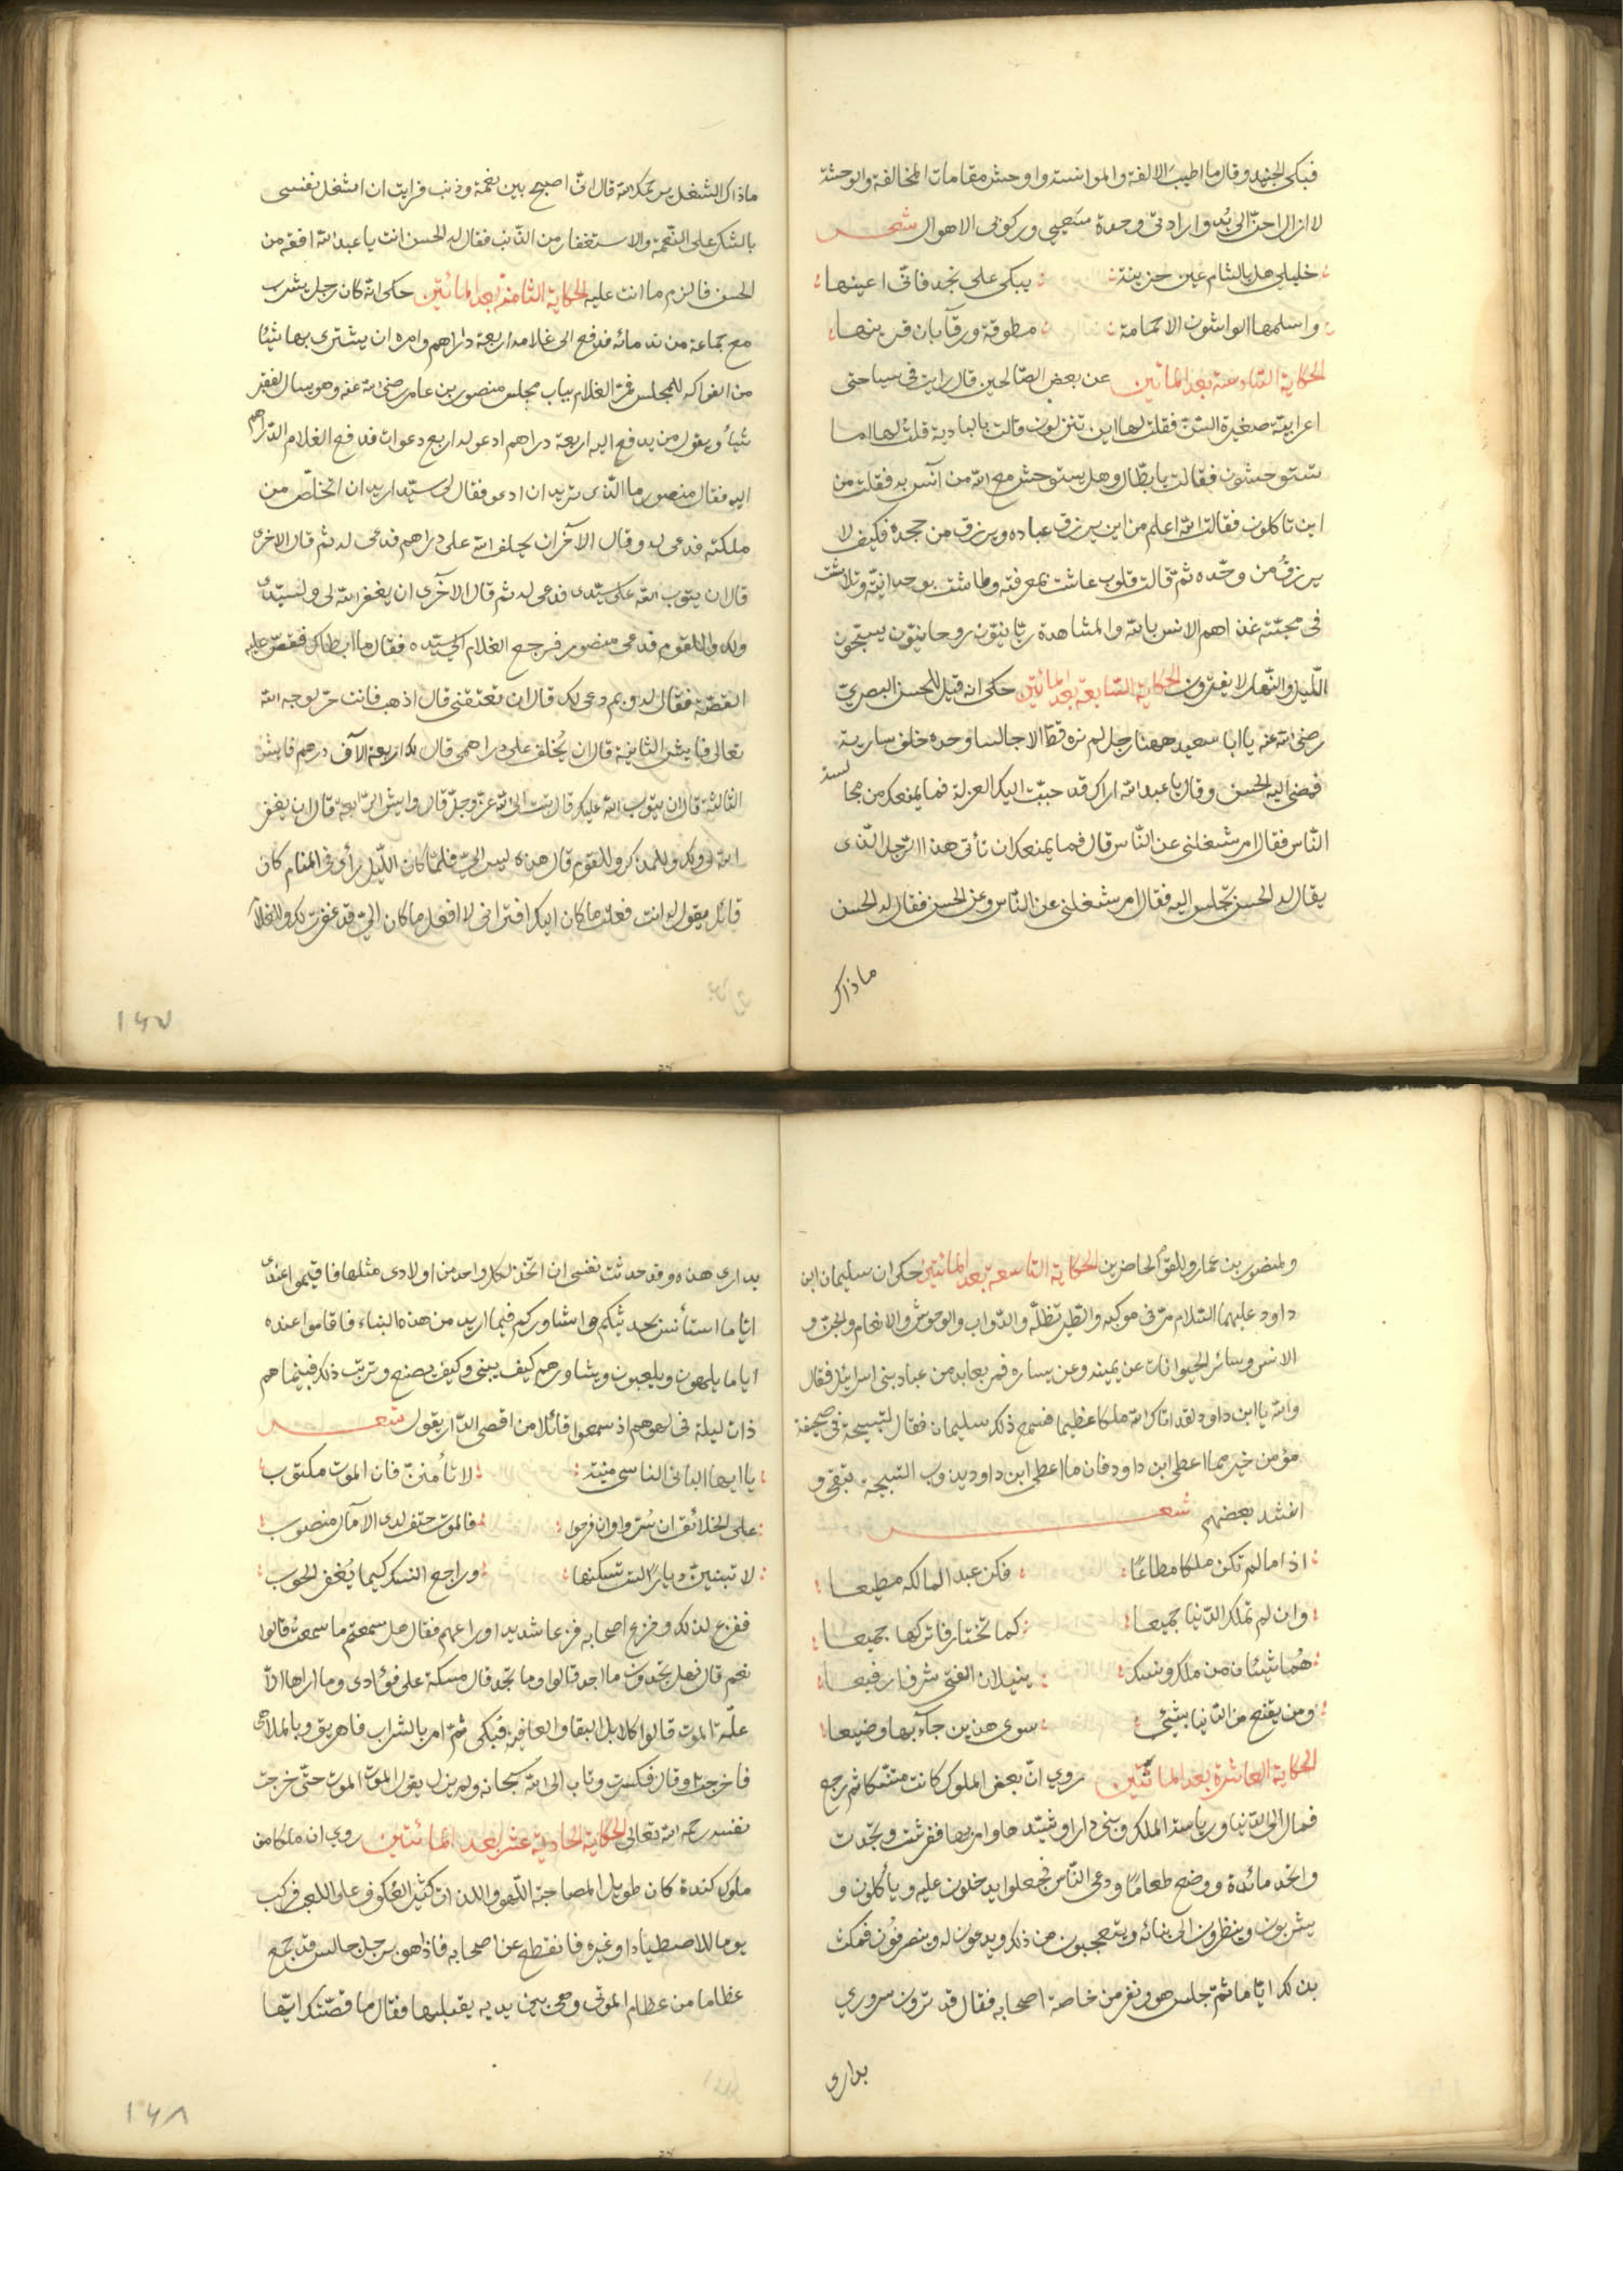 فبكى الجنيد وقال ما اطيب الالفة والموانسة واوحش مقامات المخالفة والوحشة
لا ازال احنّ الى بدو ارادتى وحدة سَعيى وركوبى الاهوال شعر
خليلى هل بالشام عين حزينة يبكى على نجد فانّى اعينها
واسلمها الواشون الا حمامة مطوقة ورقآ بان قرينها
الحكاية السّادسة بعد المأتين عن بعض الصّالحين قال رايت فى سياحتى
اعرابية صغيرة السّنّ فقلت لها اين تنزلون قالت بالبادية قلت لها اما
تستوحشون فقالت يا بطّال وهل يستوحش مع الله من آنس به فقلت من
اين تاكلون فقالت الله اعلم من اين يرزق عباده ويرزق من جحده فكيف لا
يرزقُ من وحّده ثم قالت قلوب عاشت بمعرفته وطاشت بوحدانيّته وتلاشت
فى محبّته غذاهم الانس بالله والمشاهدة ربّانيّون روحانيّون يسبّحون
اللّيل والنّهار لا يفترون الحكاية السّابعة بعد المأتين حكى انه قيل للحسن البصريّ
رضى الله عنه يا ابا سعيد ههنا رجل لم نره قطّ الا جالسا وحده خلف سارية
فمضى اليه الحسن وقال يا عبد الله اراك قد حببّت اليك العزلة فما يمنعك من مجالسة
النّاس فقال امر شغلنى عن النّاس قال فما يمنعك ان تأتى هذا الرّجل الّذى
يقال له الحسن تجلس اليه فقال امر شغلنى عن النّاس وعن الحسن فقال له الحسن
ما ذاك
ماذاك الشغل يرحمك الله قال انّى اصبح بين نعمة وذنب فرايت ان اشغل نفسى
بالشكر على النّعمة والاستغفار من الذّنب فقال له الحسن انت يا عبد الله افقه من
الحسن فالزم ما انت عليه الحكاية الثامنة بعد المأتين حكى انّه كان رجل يشرب
مع جماعة من ندمائه فدفع الى غلامه اربعة دراهم وامره ان يشترى بها شيئا
من الفواكه للمجلس فمرّ الغلام بباب مجلس منصور بن عامر رضى الله عنه وهو يسال لفقير
شيأ ويقول من يدفع اليه اربعة دراهم ادعو له اربع دعوات فدفع الغلام الدّراهم
اليه فقال منصور ما الّذى تريد ان ادعو فقال لى سيّد اريد ان اتخلّص من
ملكته فدعى له وقال الآخر ان يخلف الله على دراهم فدعى له ثم قال الاخرى
قال ان يتوب الله على سيّدى فدعى له ثم قال الاخرى ان يغفر الله لى ولسيّدى
ولك وللقوم فدعى منصور فرجع الغلام الى سيّده فقال ما ابطاك فقصّ عليه
القصّة فقال له وبم دعى لك قال ان تعتقنى قال اذهب فانت حرّ لوجه الله
تعالى فايش الثانية قال ان يُخلف على دراهمى قال لك اربعة الآف درهم فايش
الثالثة قال ان يتوب الله عليك قال تبت الى الله عزّ وجلّ قال وايش الرّابعة قال ان يغفر
الله لى ولك وللمذكر وللقوم قال هذه ليس الىّ فلمّا كان اللّيل رأى فى المنام كان
قائلا يقول له انت فعلت ما كان اليك افترانى لا افعل ما كان الىّ قد غفرت لك وللغلام
١٤٧
ولمنصور بن عمار وللقوم الحاضرين الحكاية التاسعة بعد المائتين حكى ان سليمان ابن
داود عليهما السّلام مرّ فى موكبه والطّير تظلّه والدّواب والوحوش والانعام والجن و
الانس وسائر الحيوانات عن يمينه وعن يساره فمر بعابد من عباد بنى اسرائيل فقال
والله يا ابن داود لقد اتاك الله ملكا عظيما فسمع ذلك سليمان فقال لتسبيحة فى صحيفة
مؤمن خير مما اعطى ابن داود فان ما اعطى ابن داود يذهب والتسبيحة تبقى و
انشد بعضهم شعر
اذا ما لم تكن ملكا مطاعًا فكن عبدا لمالكه مطيعا
وان لم تملك الدّنيا جميعا كما تختار فاتركها جميعا
هُما شيئان من ملك ونسك ينيلان الفتى شرفا رفيعا
ومن يقنع من الدّنيا بشيئ سوى هذين جآء بها وضيعا
الحكاية العاشرة بعد المائتين روي انّ بعض الملوك كانت متنسّكا ثم رجع
فمال الى الدّنيا ورياسة الملك وبنى دارا وشيّدها وامر بها ففرشت ونجّدت
واتخذ مائدة ووضع طعامًا ودعى النّاس فجعلوا يدخلون عليه ويأكلون و
يشربون وينظرون الى بنائه ويتعجبون من ذلك ويدعون له وينصرفون فمكث
بذلك ايّاما ثمّ جلس هو ونفر من خاصة اصحابه فقال قد ترون سروري
بدارى
بدارى هذه وقد حدثت نفسى ان اتخذ لكل واحد من اولادى مثلها فاقيموا عندى
ايّاما استأنس بحديثكم واشاوركم فيما اريد من هذه البناء فاقاموا عنده
اياما يلهون ويلعبون ويشاورهم كيف يبنى وكيف يصنع وترتّب ذلك فبينما هم
ذات ليلة فى لهوهم اذ سمعوا قائلا من اقصى الدّار يقول شعر
يا ايها البانى الناسى منيته لا تأمننّ فان الموت مكتوب
على الخلائق ان سُرّوا وان فرحوا فالموت حتف لدى الآمال منصوب
لا تبنينّ ديارًا لست تسكنها وراجع النسك كيما يُغفر الحوب
ففزع لذلك وفزع اصحابه فزعا شديدا وراعهم فقال هل سمعتم ما سمعتُ قالوا
نعم قال فهل تجدون ما اجد قالوا وما تجد قال مسكة على فؤادى وما اراها الّا
علّة الموت قالوا كلا بل البقا والعافية فبكى ثمّ امر بالشراب فاهريق وبالملاهى
فاخرجت وقال فكسرت وتاب الى الله سبحانه ولم يزل يقول الموت الموت حتّى خرجت
نفسه رحمه الله تعالى الحكاية الحادية عشر بعد المائتين روي ان ملكا من
ملوك كندة كان طويل المصاحبة اللّهو واللذات كثير العُكوف على اللعب فركب
يوما للاصطياد او غيره فانقطع عن اصحابه فاذا هو برجل جالس قد جمع
عظاما من عظام الموتى وهى بين يديه يقبلبها فقال ما قصّتك ايّها
١٤٨